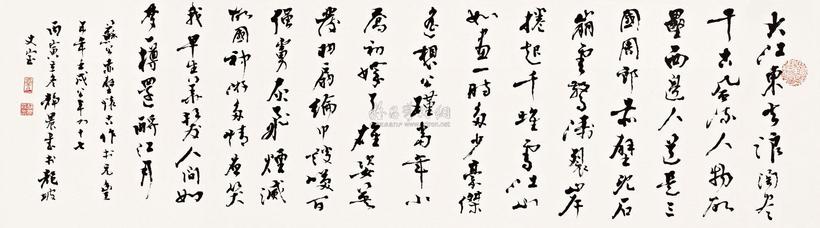 大江東去浪淘盡
千古風流人物故
壘西邊人道是三
國周郎赤壁亂石
崩雲驚濤裂岸
捲起千堆雪江山
如畫一時多少豪傑
遙想公瑾當年小
喬初嫁了雄姿英
發羽扇綸巾談笑間
強虜灰飛煙滅
故國神游多情應笑
我早生華髮人間如
夢一樽還酹江月
蘇公赤壁懷古作於元豐
五年壬戌公年四十七
丙寅立冬靜農書於龍坡